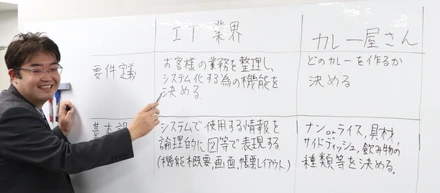 IT業界
カレー屋さん
要件定義
お客様の業務を整理し、
システム化する為の機能を
決める
どのカレーを作るか
決める
基本設
システムで使用する情報を
論理的に図等で表現する
(機能概要、画面、帳票レイアウト)
ナンorライス、具材
サイドディッシュ、飲み物の
種類等を決める。